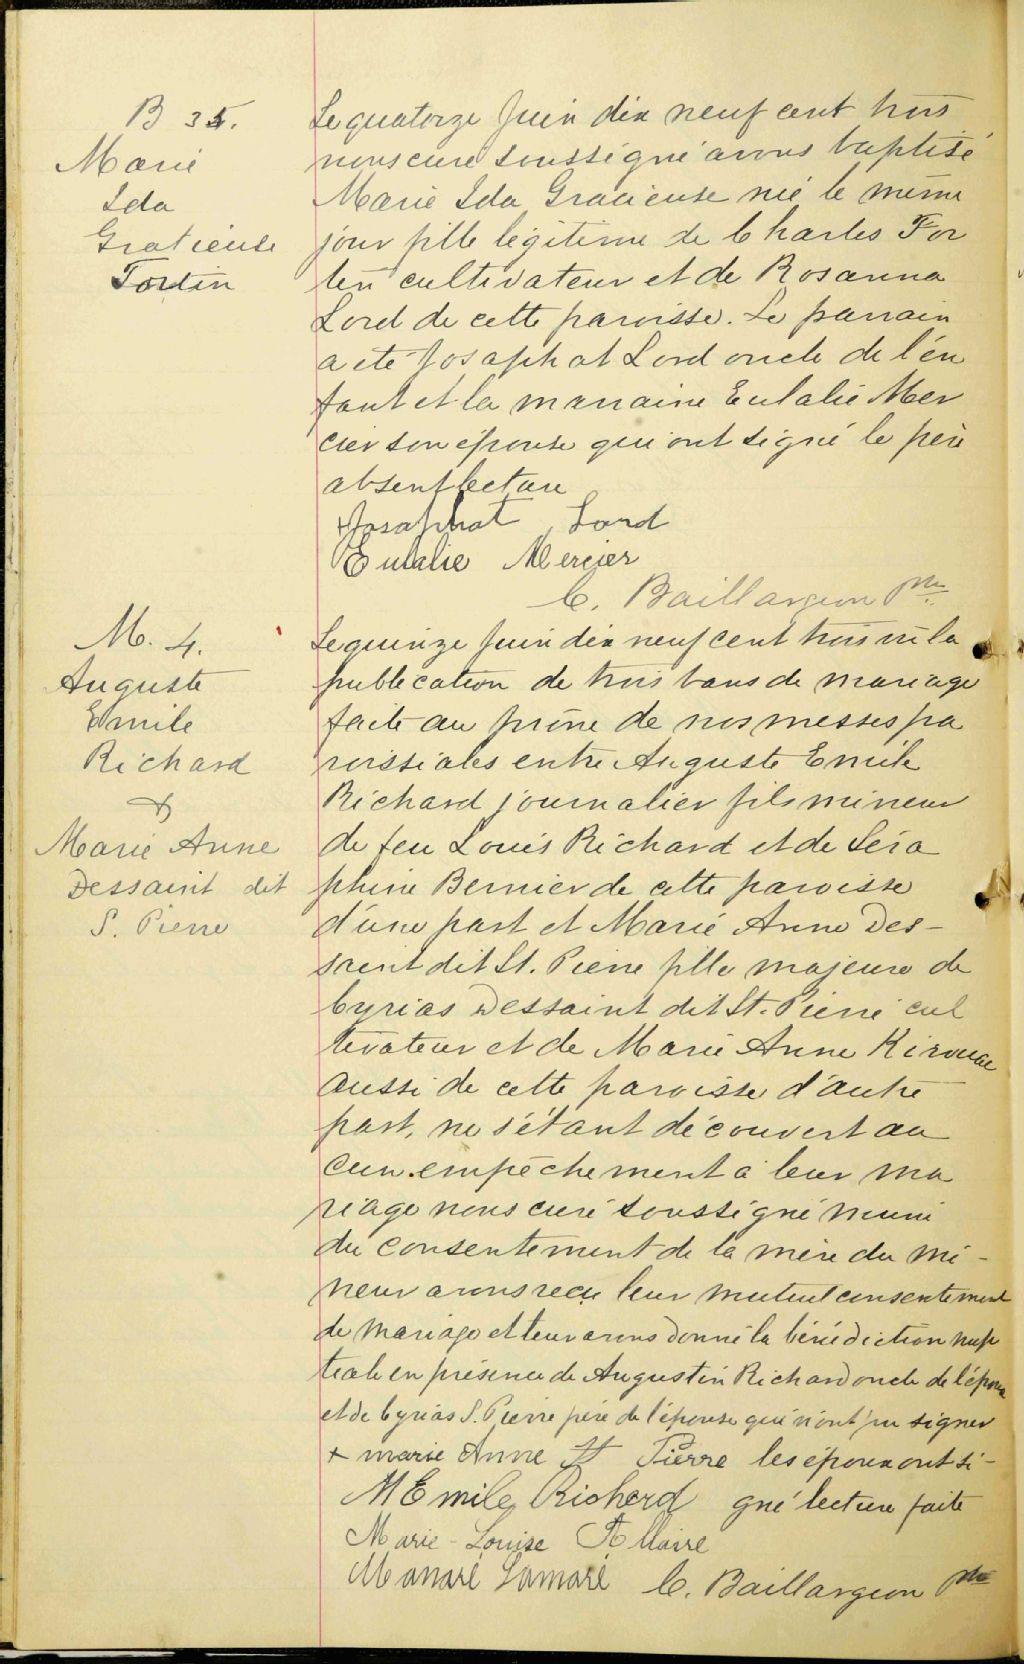 B 35.
Marie
Ida
Gratieuse
Fortin
Le quatorze Juin dix neuf cent trois
nous curé soussigné avons baptisé
Marie Ida Gracieuse née le même
jour fille légitime de Charles For
tin cultivateur et de Rosanna
Lord de cette paroisse. Le parrain
a été Josaphat Lord oncle de l'en
fant et la marraine Eulalie Mer
cier son épouse qui ont signé le père
absent lecture
+ Josaphat Lord
Eulalie Mercier
C. Baillargeon Ptre
M. 4.
Auguste
Emile
Richard
&
Marie Anne
Dessaint dit
S. Pierre
Le quinze Juin dix neuf cent trois vu la
publication de trois bans de mariage
faite au prône de nos messes pa
roissiales entre Auguste Emile
Richard journalier fils mineur
de feu Louis Richard et de Séra
phine Bernier de cette paroisse
d'une part et Marie Anne Des-
saint dit St. Pierre fille majeure de
Cyrias Dessaint dit St. Pierre cul
tivateur et de Marie Anne Kirouac
aussi de cette paroisse d'autre
part, ne s'étant découvert au
cun empêchement à leur ma
riage nous curé soussigné muni
du consentement de la mère du mi-
neur avons reçu leur mutuel consentement
de mariage et leur avons donné la bénédiction nup
tiale en présence de Augustin Richard oncle de l'époux
et de Cyrias S. Pierre père de l'épouse qui n'ont pu signer
+ marie Anne St Pierre les époux ont si-
M Emile Richard gné lecture faite
Marie-Louise Allaire
Lamarre
C. Baillargeon Ptre